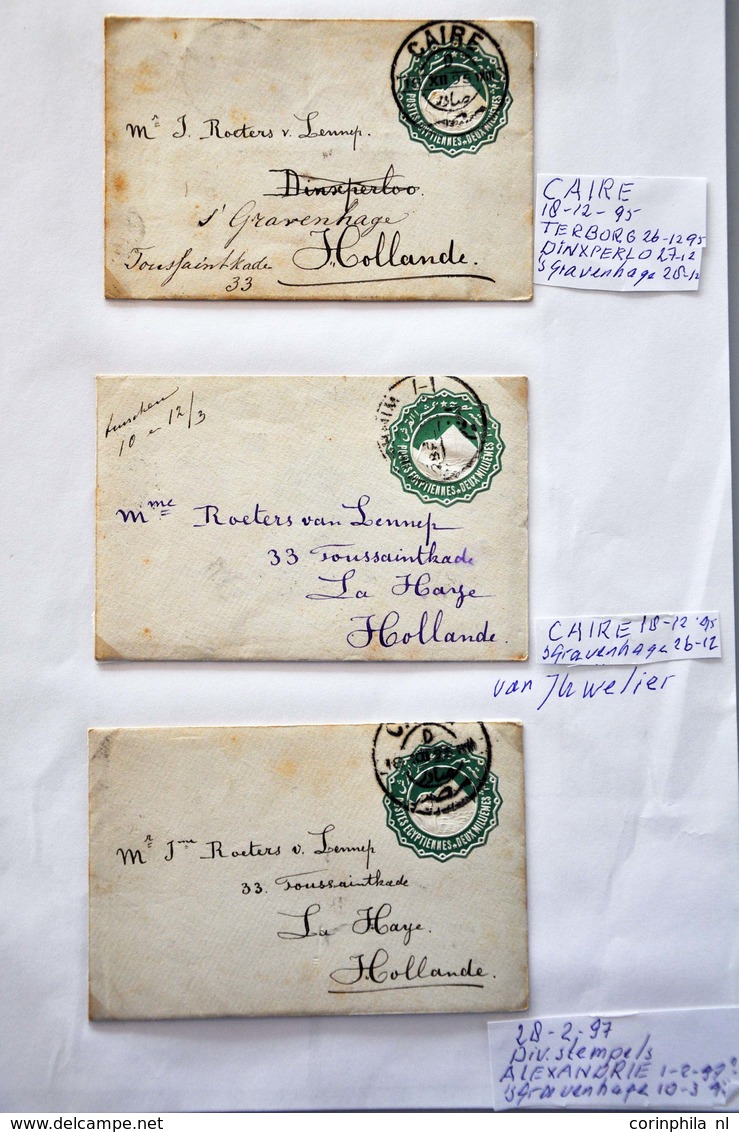 CAIRE
D
18 XII 95
صادر
POSTES EGYPTIENNES * DEUX MILLIÈMES
Mr J. Roeters v. Lennep.
Dinxperloo.
s' Gravenhage
Toussaintkade
33
Hollande.
CAIRE
18-12-95
TERBORG 26-12 95
DINXPERLO 27-12
'sGravenhage 28-12
10 - 12/3
POSTES EGYPTIENNES * DEUX MILLIÈMES
Mme Roeters van Lennep
33 Toussaintkade
La Haye
Hollande.
CAIRE 18-12 '95
sGravenhage 26-12
van
D
صادر
مصر
STES EGYPTIENNES * DEUX MILLIÈMES
Mr Jme Roeters v. Lennep
33. Toussaintkade
La Haye.
Hollande.
28-2-97
Div. stempels
ALEXANDRIE 1-2-97?
'sGravenhage 10-3
corinphila nl